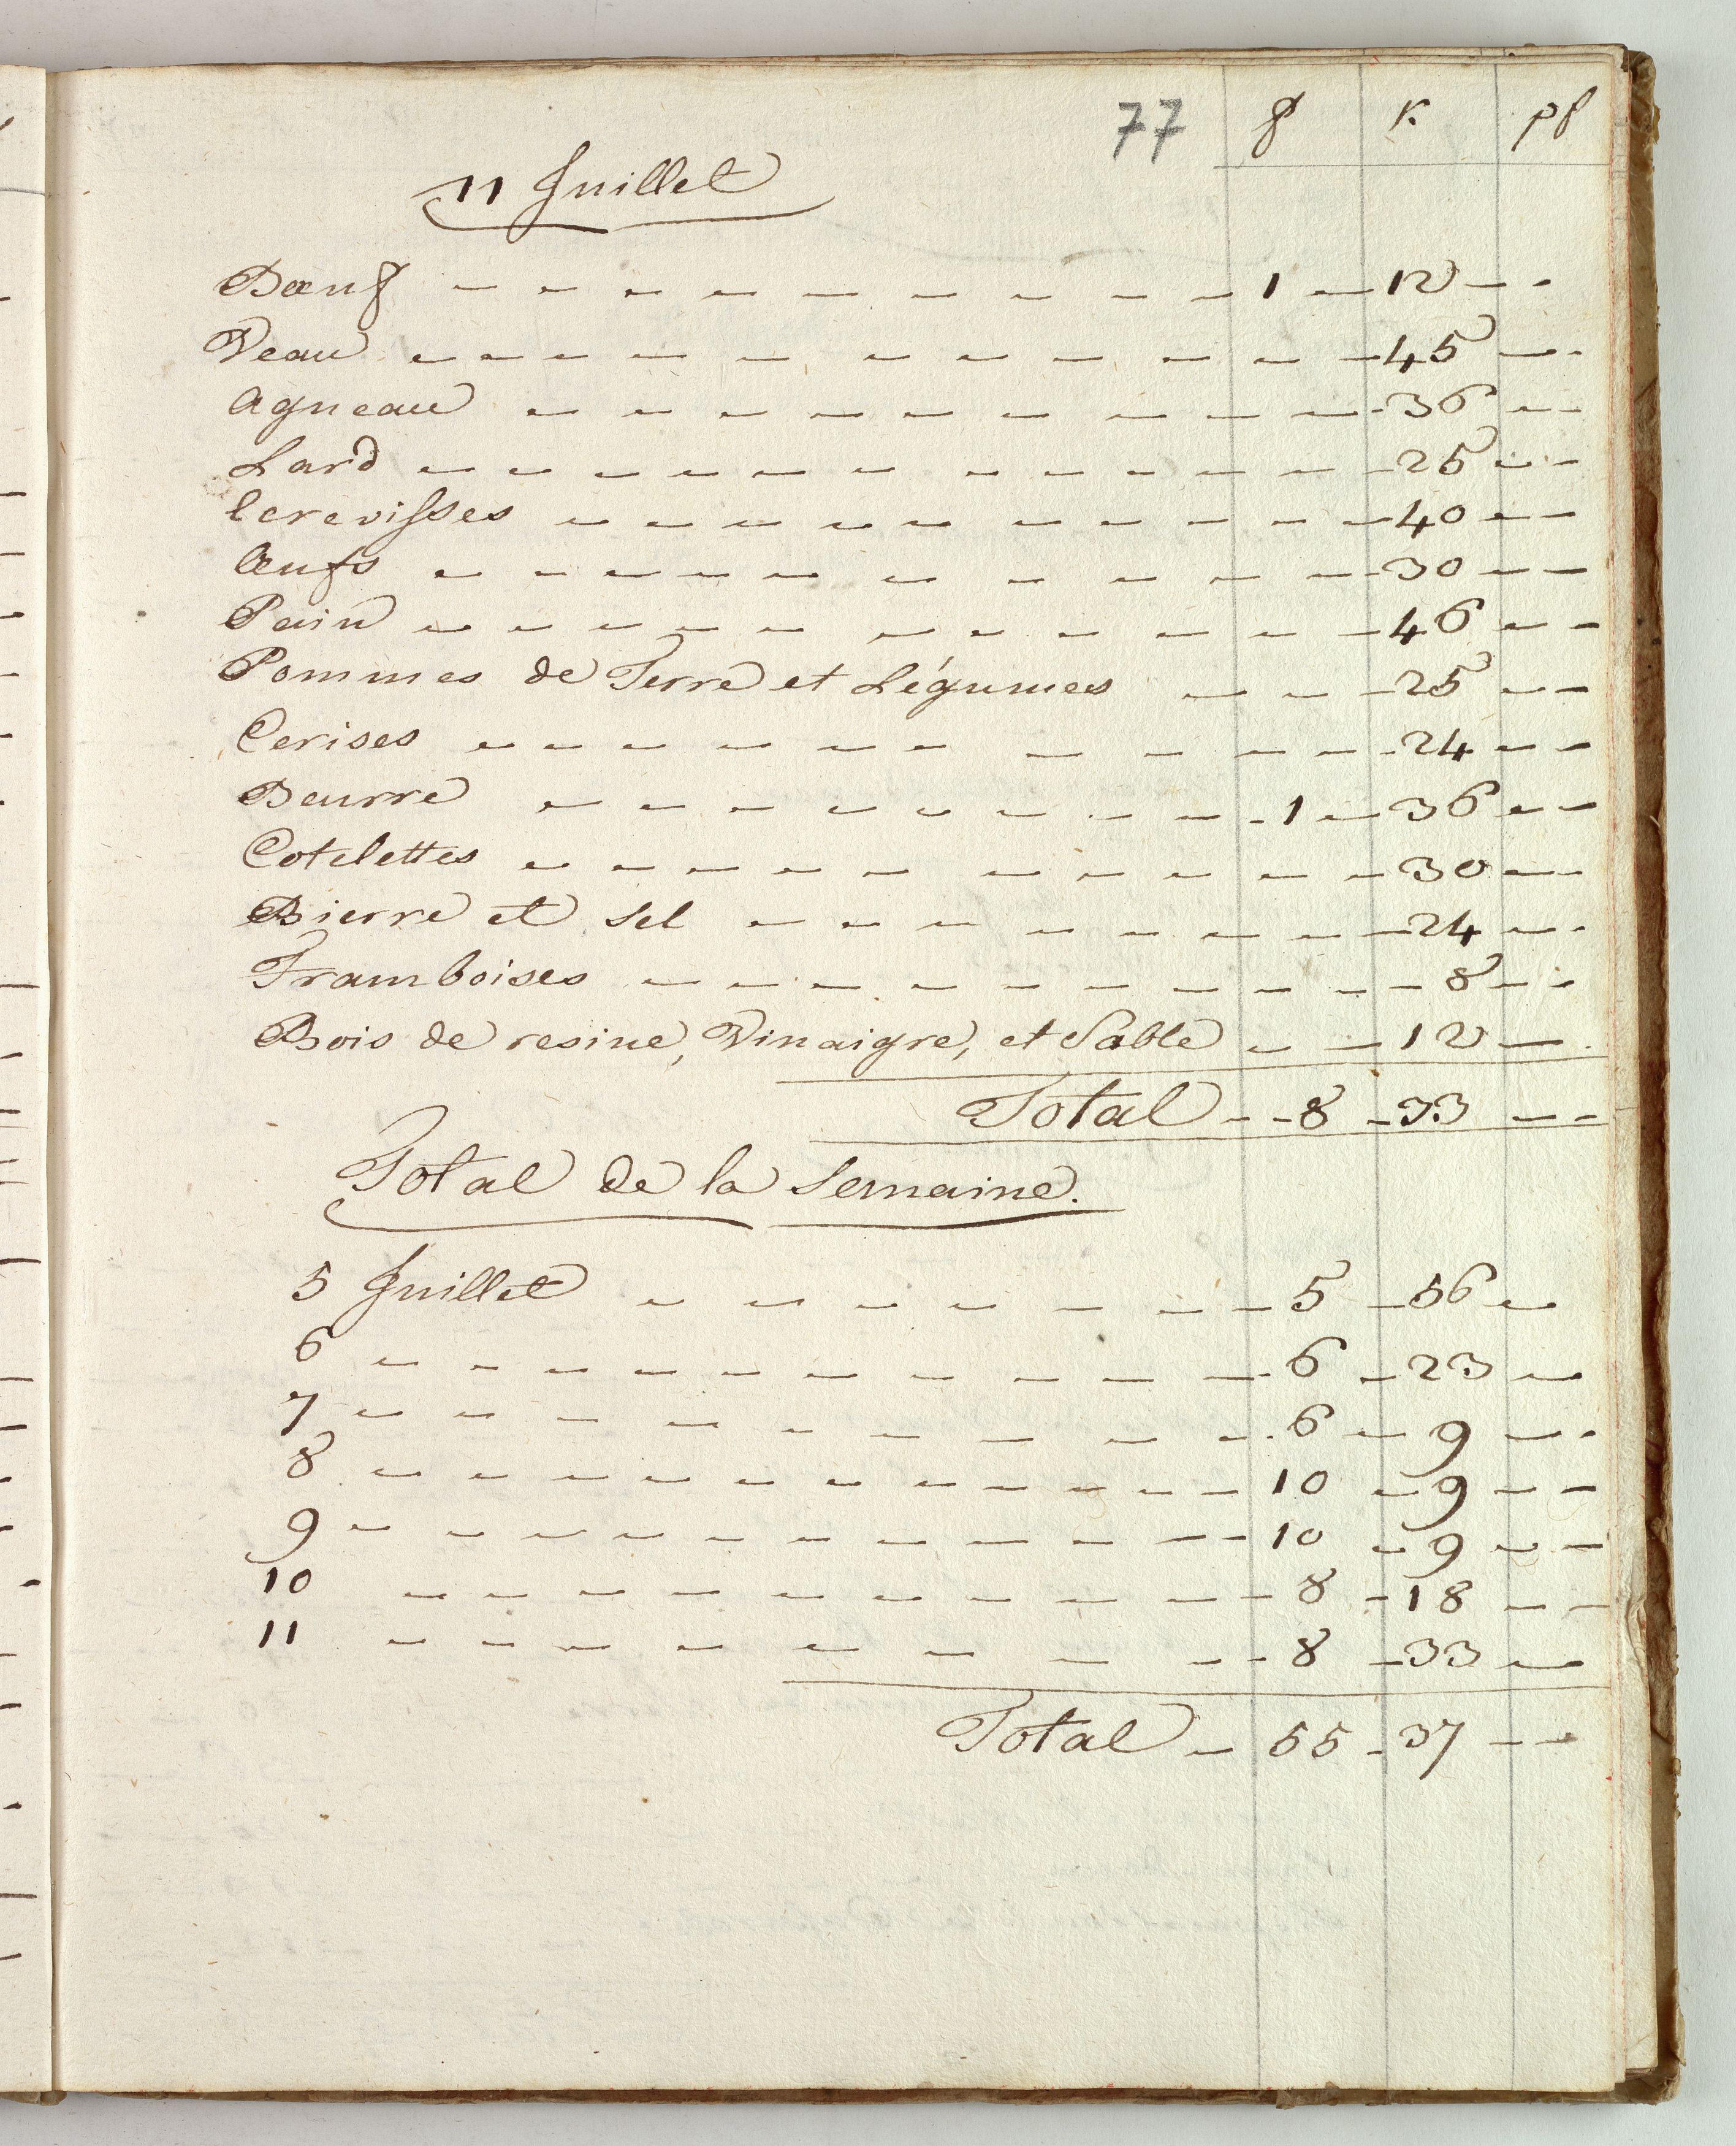 77 f k. pf
11 Juillet
Bœuf - - - - - - - - - 1 - 12 - -
Veau - - - - - - - - - - - 45 - -
Agneau - - - - - - - - - - 36 - -
Lard - - - - - - - - - - - 25 - -
Ecrevisses - - - - - - - - - - 40 - -
Œufs - - - - - - - - - - - 30 - -
Pain - - - - - - - - - - - 46 - -
Pommes de Terre et Légumes - - - 25 - -
Cerises - - - - - - - - - - - 24 - -
Beurre - - - - - - - - - 1 - 36 - -
Cotelettes - - - - - - - - - - 30 - -
Bierre et Sel - - - - - - - - 24 - -
Framboises - - - - - - - - - - 8 - -
Bois de resine, Vinaigre, et Sable - - 12 -
Total - - 8 - 33 - -
Total de la Semaine.
5 Juillet - - - - - - - 5 - 56 -
6 - - - - - - - - - - 6 - 23 -
7 - - - - - - - - - 6 - 9 - -
8 - - - - - - - - - - 10 - 9 - -
9 - - - - - - - - - - - 10 - 9 - -
10 - - - - - - - - - - 8 - 18 - -
11 - - - - - - - - - 8 - 33 -
Total - 55 - 37 - -